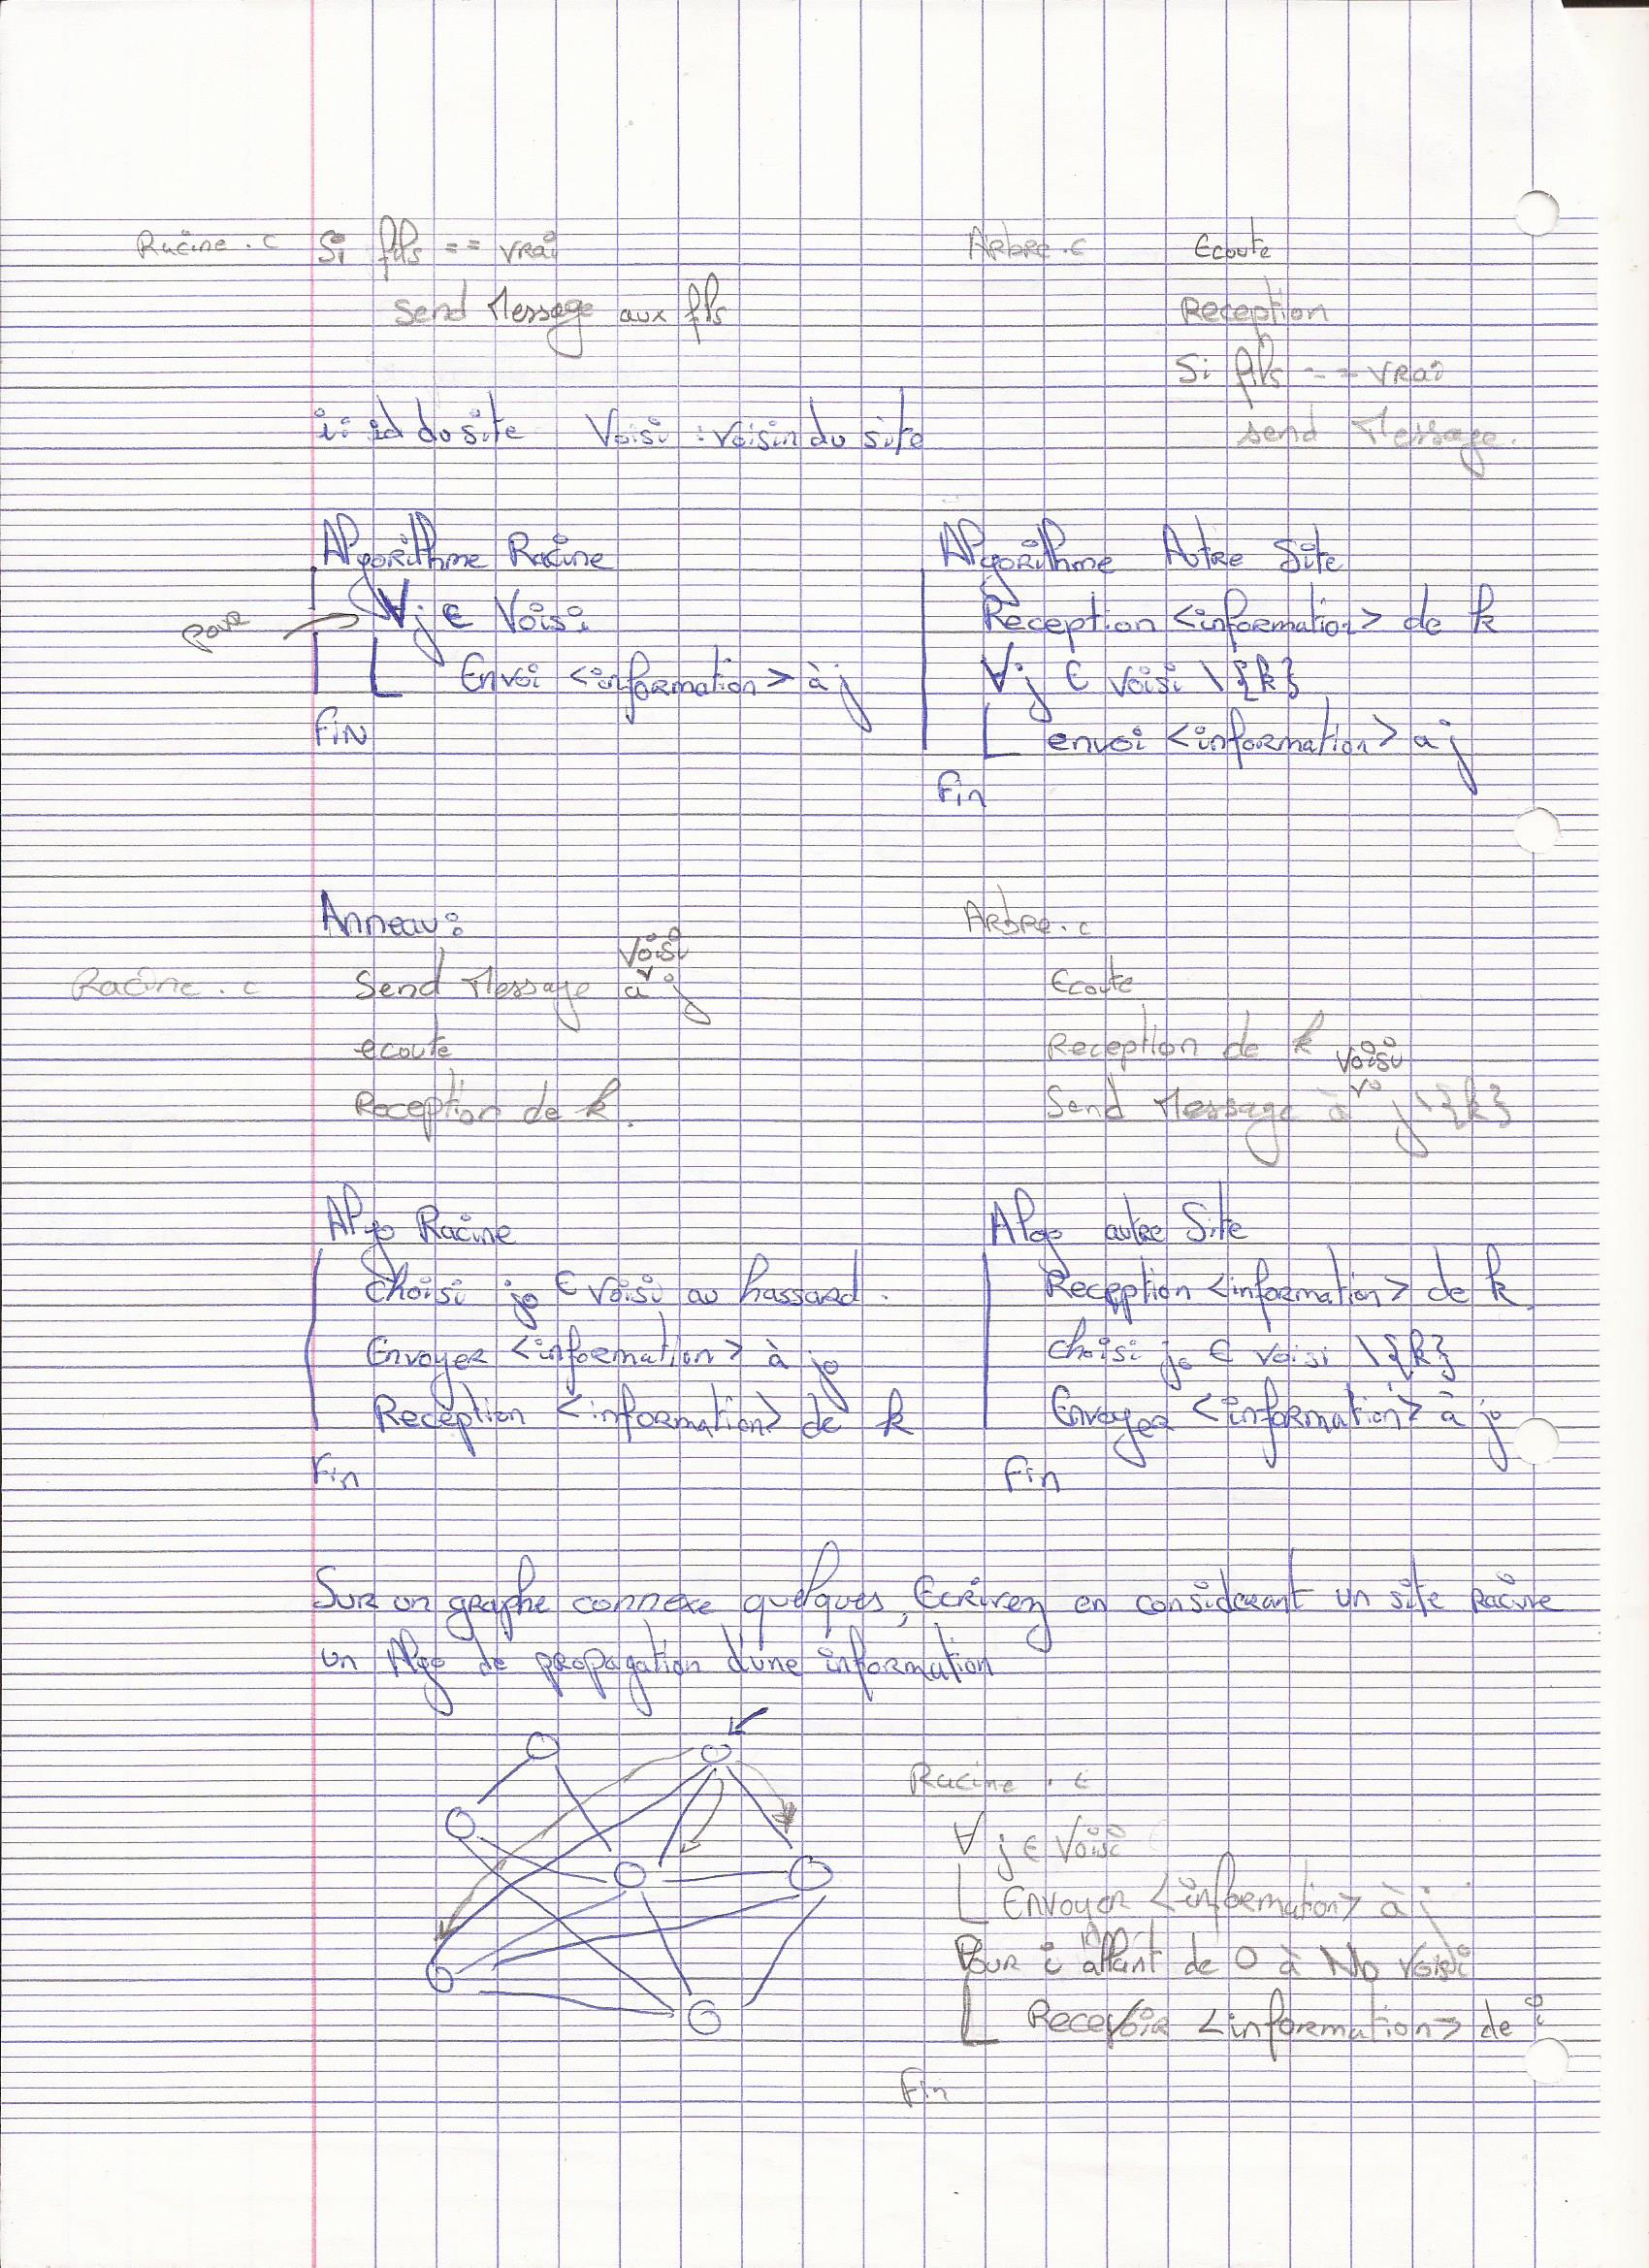 Racine.c Si fils == vrai
send Message aux fils
Arbre.c Ecoute
Reception
Si fils == vrai
send Message.
i: id du site Voisi : voisin du site
Algorithme Racine
pour ∀j ∈ Voisi
Envoi <information> à j
FIN
Algorithme Autre Site
Reception <information> de k
∀j ∈ Voisi \{k}
envoi <information> a j
Fin
Anneau:
Racine.c Send Message à j
Voisi
ecoute
Reception de k.
Arbre.c
Ecoute
Reception de k
Voisi
Send Message à j\{k}
Algo Racine
choisi jo ∈ Voisi au hassard.
Envoyer <information> à jo
Reception <information> de k
Fin
Algo autre Site
Reception <information> de k.
choisi jo ∈ Voisi \{k}
Envoyer <information> à jo
Fin
Sur un graphe connexe quelques, Ecrivez en considerant un site racine
un Algo de propagation d'une information
Racine.c
∀j ∈ Voisi
Envoyer <information> à j
Pour i allant de 0 à Nb Voisi
Recevoir <information> de i
Fin